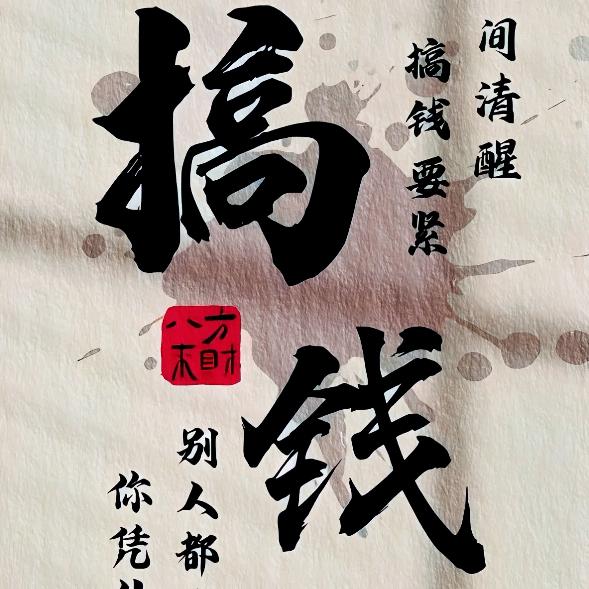 间清醒
搞钱要紧
搞钱
八方
来財
别人都
你凭